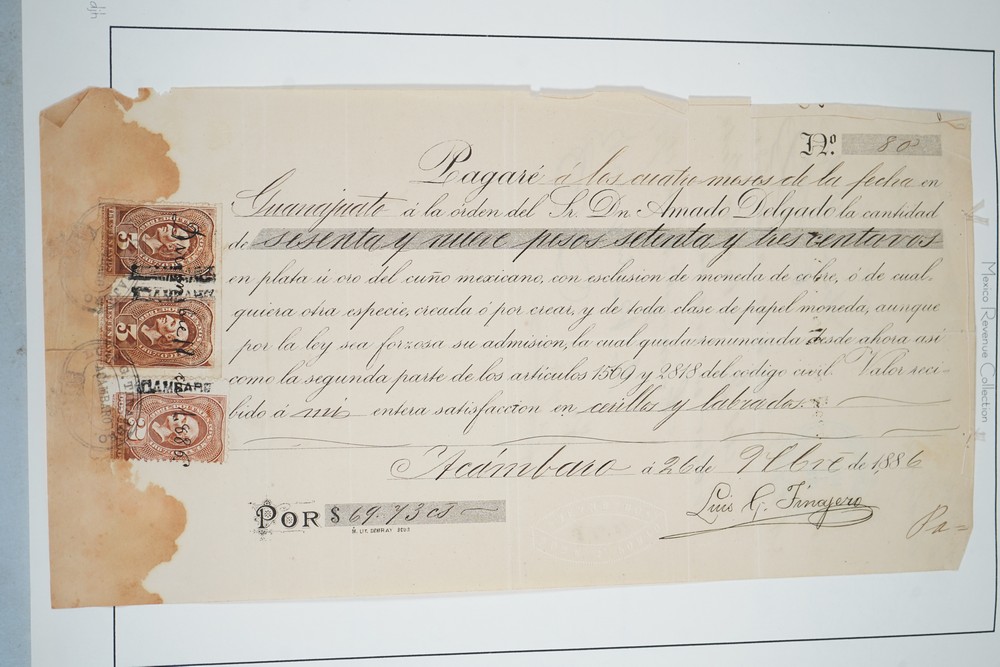 djh
Nº 80
Pagaré á los cuatro meses de la fecha en
Guanajuato á la orden del Sr. Dn Amado Delgado la cantidad
de sesenta y nueve pesos setenta y tres centavos
en plata ú oro del cuño mexicano, con esclusion de moneda de cobre, ó de cual-
quiera otra especie, creada ó por crear, y de toda clase de papel moneda, aunque
por la ley sea forzosa su admision, la cual queda renunciada desde ahora asi
como la segunda parte de los articulos 1569 y 2818 del codigo civil. Valor reci-
bido á mi entera satisfaccion en cerillos y labrados.
Acámbaro á 26 de 9bre de 1886
Luis G. Finajero
POR $ 69.73 cs
Pa=
5
5
ACAMBARO
Mexico Revenue Collection